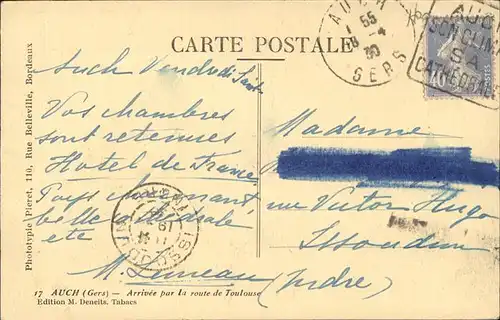 CARTE POSTALE
AUCH
GERS
AUCH
SON CLIMAT
SA
CATHEDRALE
Auch Vendredi Saint
Vos chambres
sont retenues
Hotel de France
Pays charmant
belle cathédrale
etc
M. Luneau
Madame
rue Victor Hugo
Issoudun
(Indre)
ISSOUDUN
Phototypie Pieret, 110, Rue Belleville, Bordeaux
17 AUCH (Gers) — Arrivée par la route de Toulouse
Edition M. Deneits, Tabacs